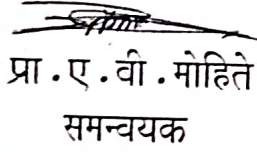 प्रा . ए . वी . मोहिते
समन्वयक